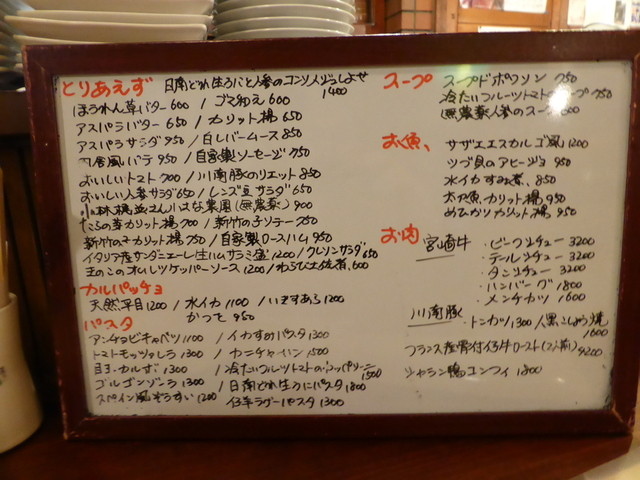 とりあえず 日南どれ生うにと人参のコンソメジュレよせ 1400
ほうれん草バター 600 / ゴマ和え 600
アスパラバター 650 / カリット揚 650
アスパラサラダ 950 / 白レバームース 850
田舎風パテ 950 / 自家製ソーセージ 750
おいしいトマト 700 / 川南豚のリエット 850
おいしい人参サラダ 650 / レンズ豆サラダ 650
小林 さん 農園(無農薬) 900
たらの芽カリット揚 700 / 新竹の子ソテー 750
新竹の子カリット揚 750 / 自家製ロースハム 950
イタリア産サンダニエーレ生ハムサラミ盛 1200 / クレソンサラダ 650
王のこのオイルツケッパーソース 1200 / わらび土佐煮 600
カルパッチョ
天然平目 1200 / 水イカ 1100 / いさきあぶり 1200
かつを 950
パスタ
アンチョビキャベツ 1100 / イカすみパスタ 1300
トマトモッツァレラ 1300 / カニチャーハン 1500
目玉カルボ 1300 / 冷たいフルーツトマトのカッペリーニ 1500
ゴルゴンゾーラ 1300 / 日南どれ生うにパスタ 1800
スペイン風ぞうすい 1200 / 仔羊ラグーパスタ 1300
スープ スープドポワソン 750
冷たいフルーツトマトのスープ 750
無農薬人参のスープ 600
お魚、 サザエエスカルゴ風 1200
ツブ貝のアヒージョ 950
水イカすみ煮、 850
太刀魚カリット揚 950
めひかりカリット揚 950
お肉 宮崎牛 ・ビーフシチュー 3200
・テールシチュー 3200
・タンシチュー 3200
・ハンバーグ 1800
・メンチカツ 1600
川南豚 ・トンカツ 1300 / 黒こしょう焼 1600
フランス産骨付仔羊ロースト(2人前) 4200
シャラン鴨コンフィ 1800